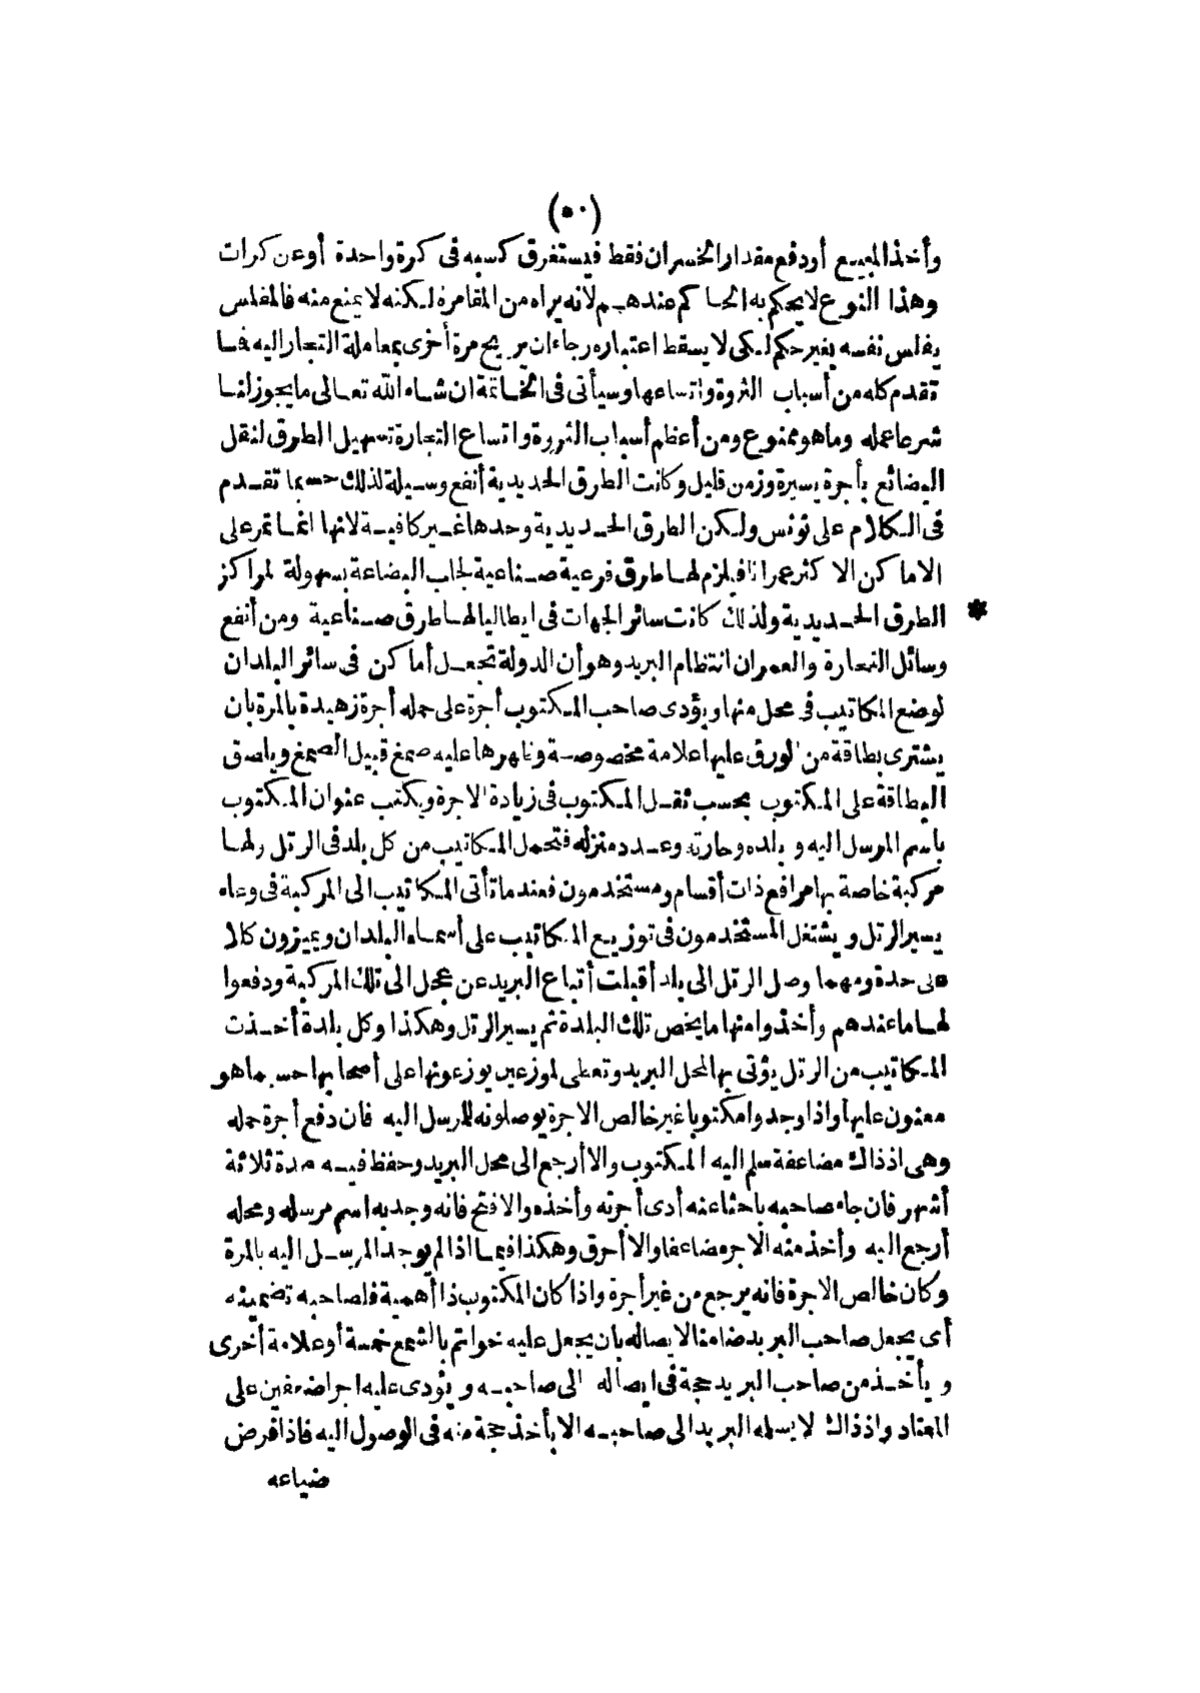 (٥٠)
وأخذ المبيع أو دفع مقدار الخسران فقط فيستغرق كسبه فى كرة واحدة أو عن كرات
وهذا النوع لا يحكم به الحاكم عندهم لانه يراه من المقامرة لكنه لا يمنع منه فالمفلس
يفلس نفسه بغير حكم لكى لا يسقط اعتباره رجاء ان يربح مرة أخرى بمعاملة التجار اليه فما
تقدم كله من أسباب الثروة واتساعها وسيأتى فى الخاتمة ان شاء الله تعالى ما يجوز لنا
شرعا عمله وما هو ممنوع ومن أعظم أسباب الثروة واتساع التجارة تسهيل الطرق لنقل
البضائع بأجرة يسيرة وزمن قليل وكانت الطرق الحديدية أنفع وسيلة لذلك حسبما تقدم
فى الكلام على تونس ولكن الطرق الحديدية وحدها غير كافية لانها انما تمر على
الاماكن الاكثر عمرانا فيلزم لها طرق فرعية صناعية لجلب البضاعة بسهولة لمراكز
* الطرق الحديدية ولذلك كانت سائر الجهات فى ايطاليا لها طرق صناعية ومن أنفع
وسائل التجارة والعمران انتظام البريد وهو أن الدولة تجعل أماكن فى سائر البلدان
لوضع المكاتيب فى محل منها ويؤدى صاحب المكتوب أجرة على حمله أجرة زهيدة بالمرة بان
يشترى بطاقة من الورق عليها علامة مخصوصة وظهرها عليه صمغ قبيل الصمغ ويلصق
البطاقة على المكتوب بحسب ثقل المكتوب فى زيادة الاجرة ويكتب عنوان المكتوب
باسم المرسل اليه وبلده وحارته وعدد منزله فتحمل المكاتيب من كل بلد فى الرتل ولها
مركبة خاصة بها مرافع ذات أقسام ومستخدمون فعندما تأتى المكاتيب الى المركبة فى وعاء
يسير الرتل ويشتغل المستخدمون فى توزيع المكاتيب على أسماء البلدان ويميزون كلا
على حدة ومهما وصل الرتل الى بلد أقبلت أتباع البريد عن عجل الى تلك المركبة ودفعوا
لها ما عندهم وأخذوا منها ما يخص تلك البلدة ثم يسير الرتل وهكذا وكل بلدة أخذت
المكاتيب من الرتل يؤتى بها لمحل البريد وتعطى لموزعين يوزعونها على أصحابها حسبما هو
معنون عليها واذا وجدوا مكتوبا غير خالص الاجرة يوصلونه للمرسل اليه فان دفع أجرة حمله
وهى اذ ذاك مضاعفة سلم اليه المكتوب والا أرجع الى محل البريد وحفظ فيه مدة ثلاثة
أشهر فان جاء صاحبه باحثا عنه أدى أجرته وأخذه والا فتح فانه وجد به اسم مرسله ومحله
أرجع اليه وأخذ منه الاجر مضاعفا والا أحرق وهكذا فيما اذا لم يوجد المرسل اليه بالمرة
وكان خالص الاجرة فانه يرجع من غير أجرة واذا كان المكتوب ذا أهمية فلصاحبه تضمينه
أى يجعل صاحب البريد ضامنا لايصاله بان يجعل عليه خواتم بالشمع خمسة أو علامة أخرى
ويأخذ من صاحب البريد حجة فى ايصاله الى صاحبه ويؤدى عليه اجرا ضعفين على
المعتاد واذ ذاك لا يسلمه البريد الى صاحبه الا بأخذ حجة منه فى الوصول اليه فاذا فرض
ضياعه